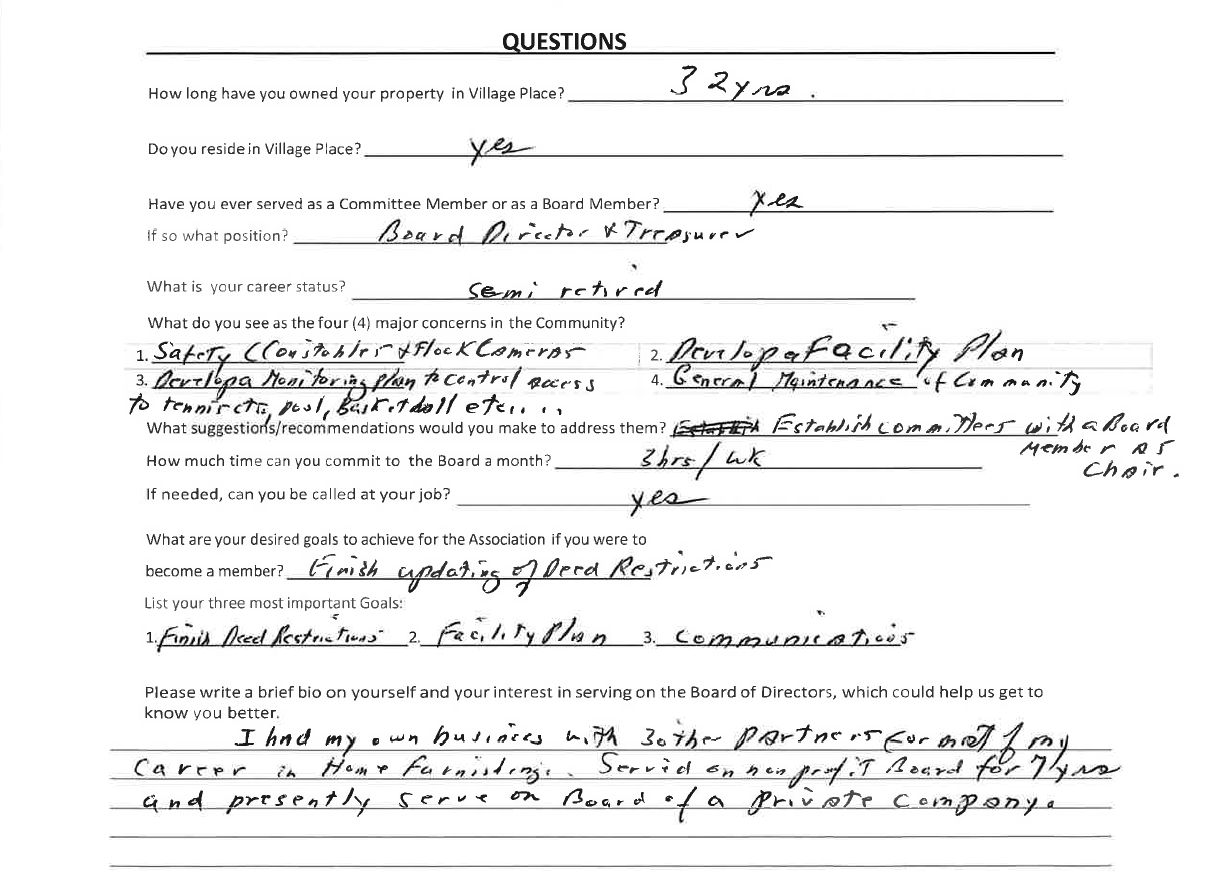 QUESTIONS
How long have you owned your property in Village Place? 32yrs.
Do you reside in Village Place? yes
Have you ever served as a Committee Member or as a Board Member? yes
If so what position? Board Director & Treasurer
What is your career status? semi retired
What do you see as the four (4) major concerns in the Community?
1. Safety (Constables & Flock Cameras 2. Develop a Facility Plan
3. Develop a Monitoring plan to control access 4. General Maintenance of Community
to tennis cts, pool, Basketball etc....
What suggestions/recommendations would you make to address them? Establish committees with a Board
Member as
How much time can you commit to the Board a month? 3hrs/wk
Chair.
If needed, can you be called at your job? yes
What are your desired goals to achieve for the Association if you were to
become a member? Finish updating of Deed Restrictions
List your three most important Goals:
1. Finish Deed Restrictions 2. Facility Plan 3. Communications
Please write a brief bio on yourself and your interest in serving on the Board of Directors, which could help us get to
know you better.
I had my own business with 3 other partners for most of my
Career in Home Furnishings. Served on non profit Board for 7yrs
and presently serve on Board of a private company.